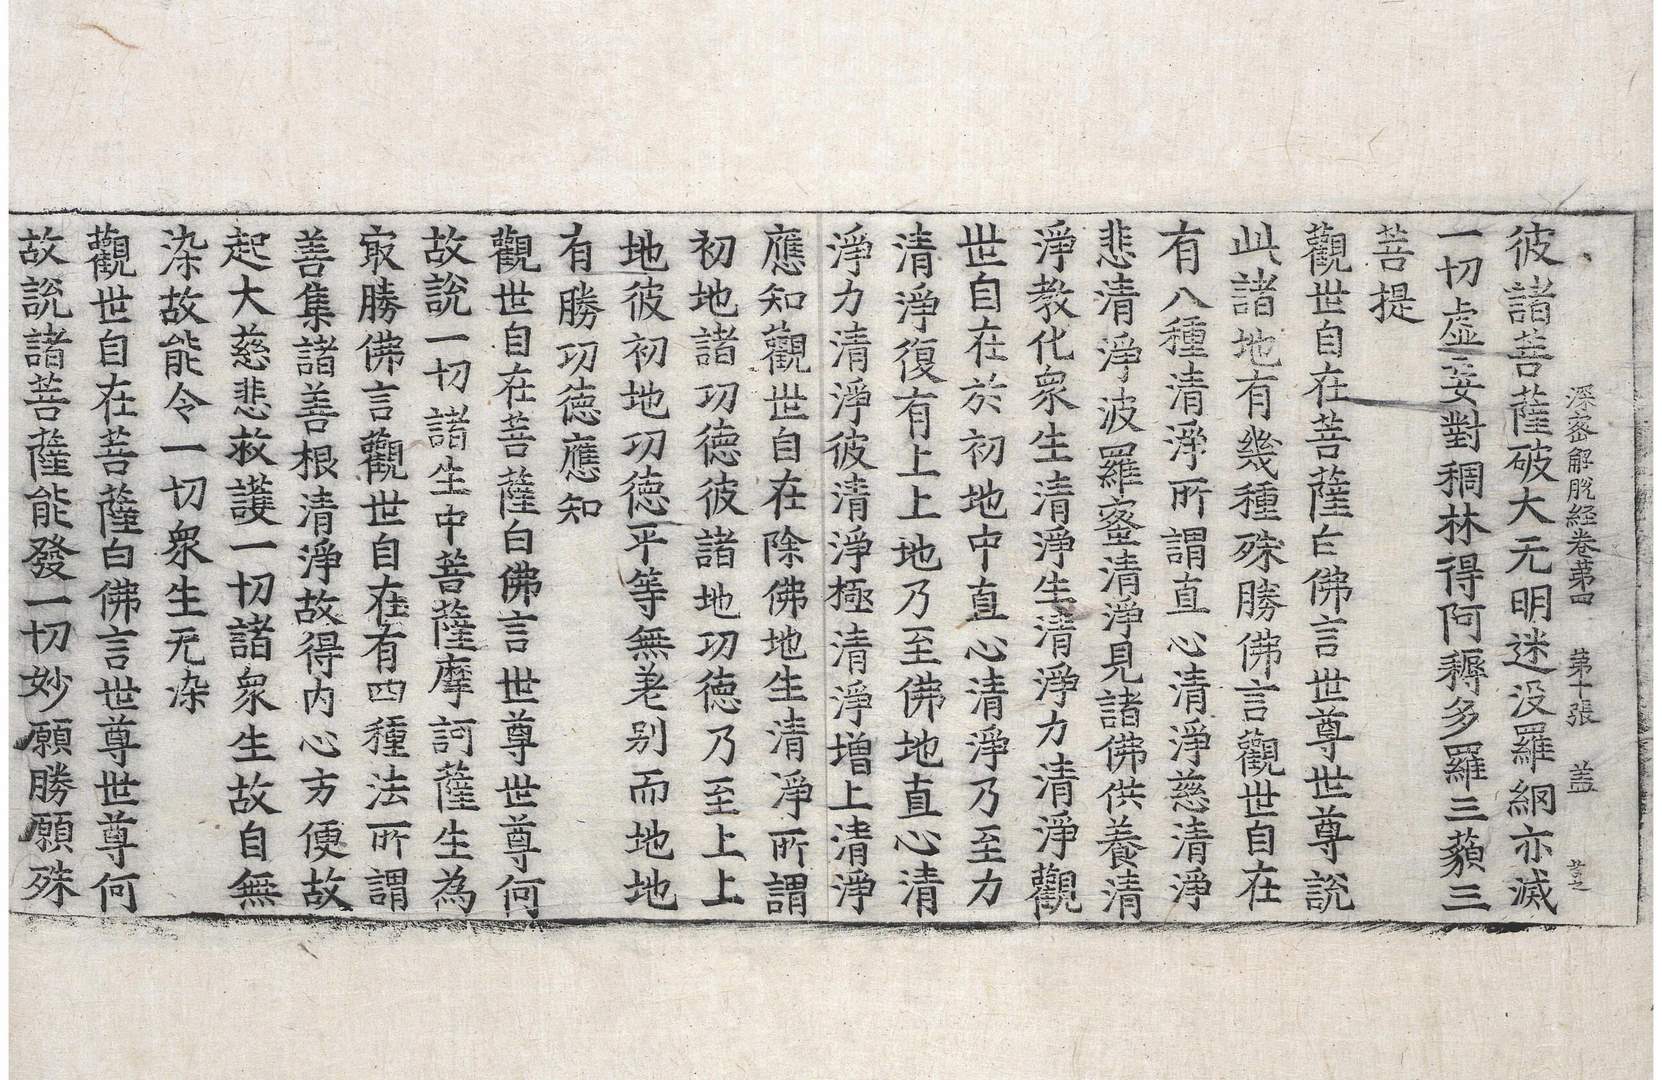 深密解脫經卷第四　第十張　盖
彼諸菩薩破大无明迷没羅網亦滅
一切虛妄對稠林得阿耨多羅三藐三
菩提
觀世自在菩薩白佛言世尊世尊說
此諸地有幾種殊勝佛言觀世自在
有八種清淨所謂直心清淨慈清淨
悲清淨波羅蜜清淨見諸佛供養清
淨教化衆生清淨生清淨力清淨觀
世自在於初地中直心清淨乃至力
清淨復有上上地乃至佛地直心清
淨力清淨彼清淨極清淨增上清淨
應知觀世自在除佛地生清淨所謂
初地諸功德彼諸地功德乃至上上
地彼初地功德平等無差别而地地
有勝功德應知
觀世自在菩薩白佛言世尊世尊何
故說一切諸生中菩薩摩訶薩生為
冣勝佛言觀世自在有四種法所謂
善集諸善根清淨故得内心方便故
起大慈悲救護一切諸衆生故自無
染故能令一切衆生无染
觀世自在菩薩白佛言世尊世尊何
故說諸菩薩能發一切妙願勝願殊